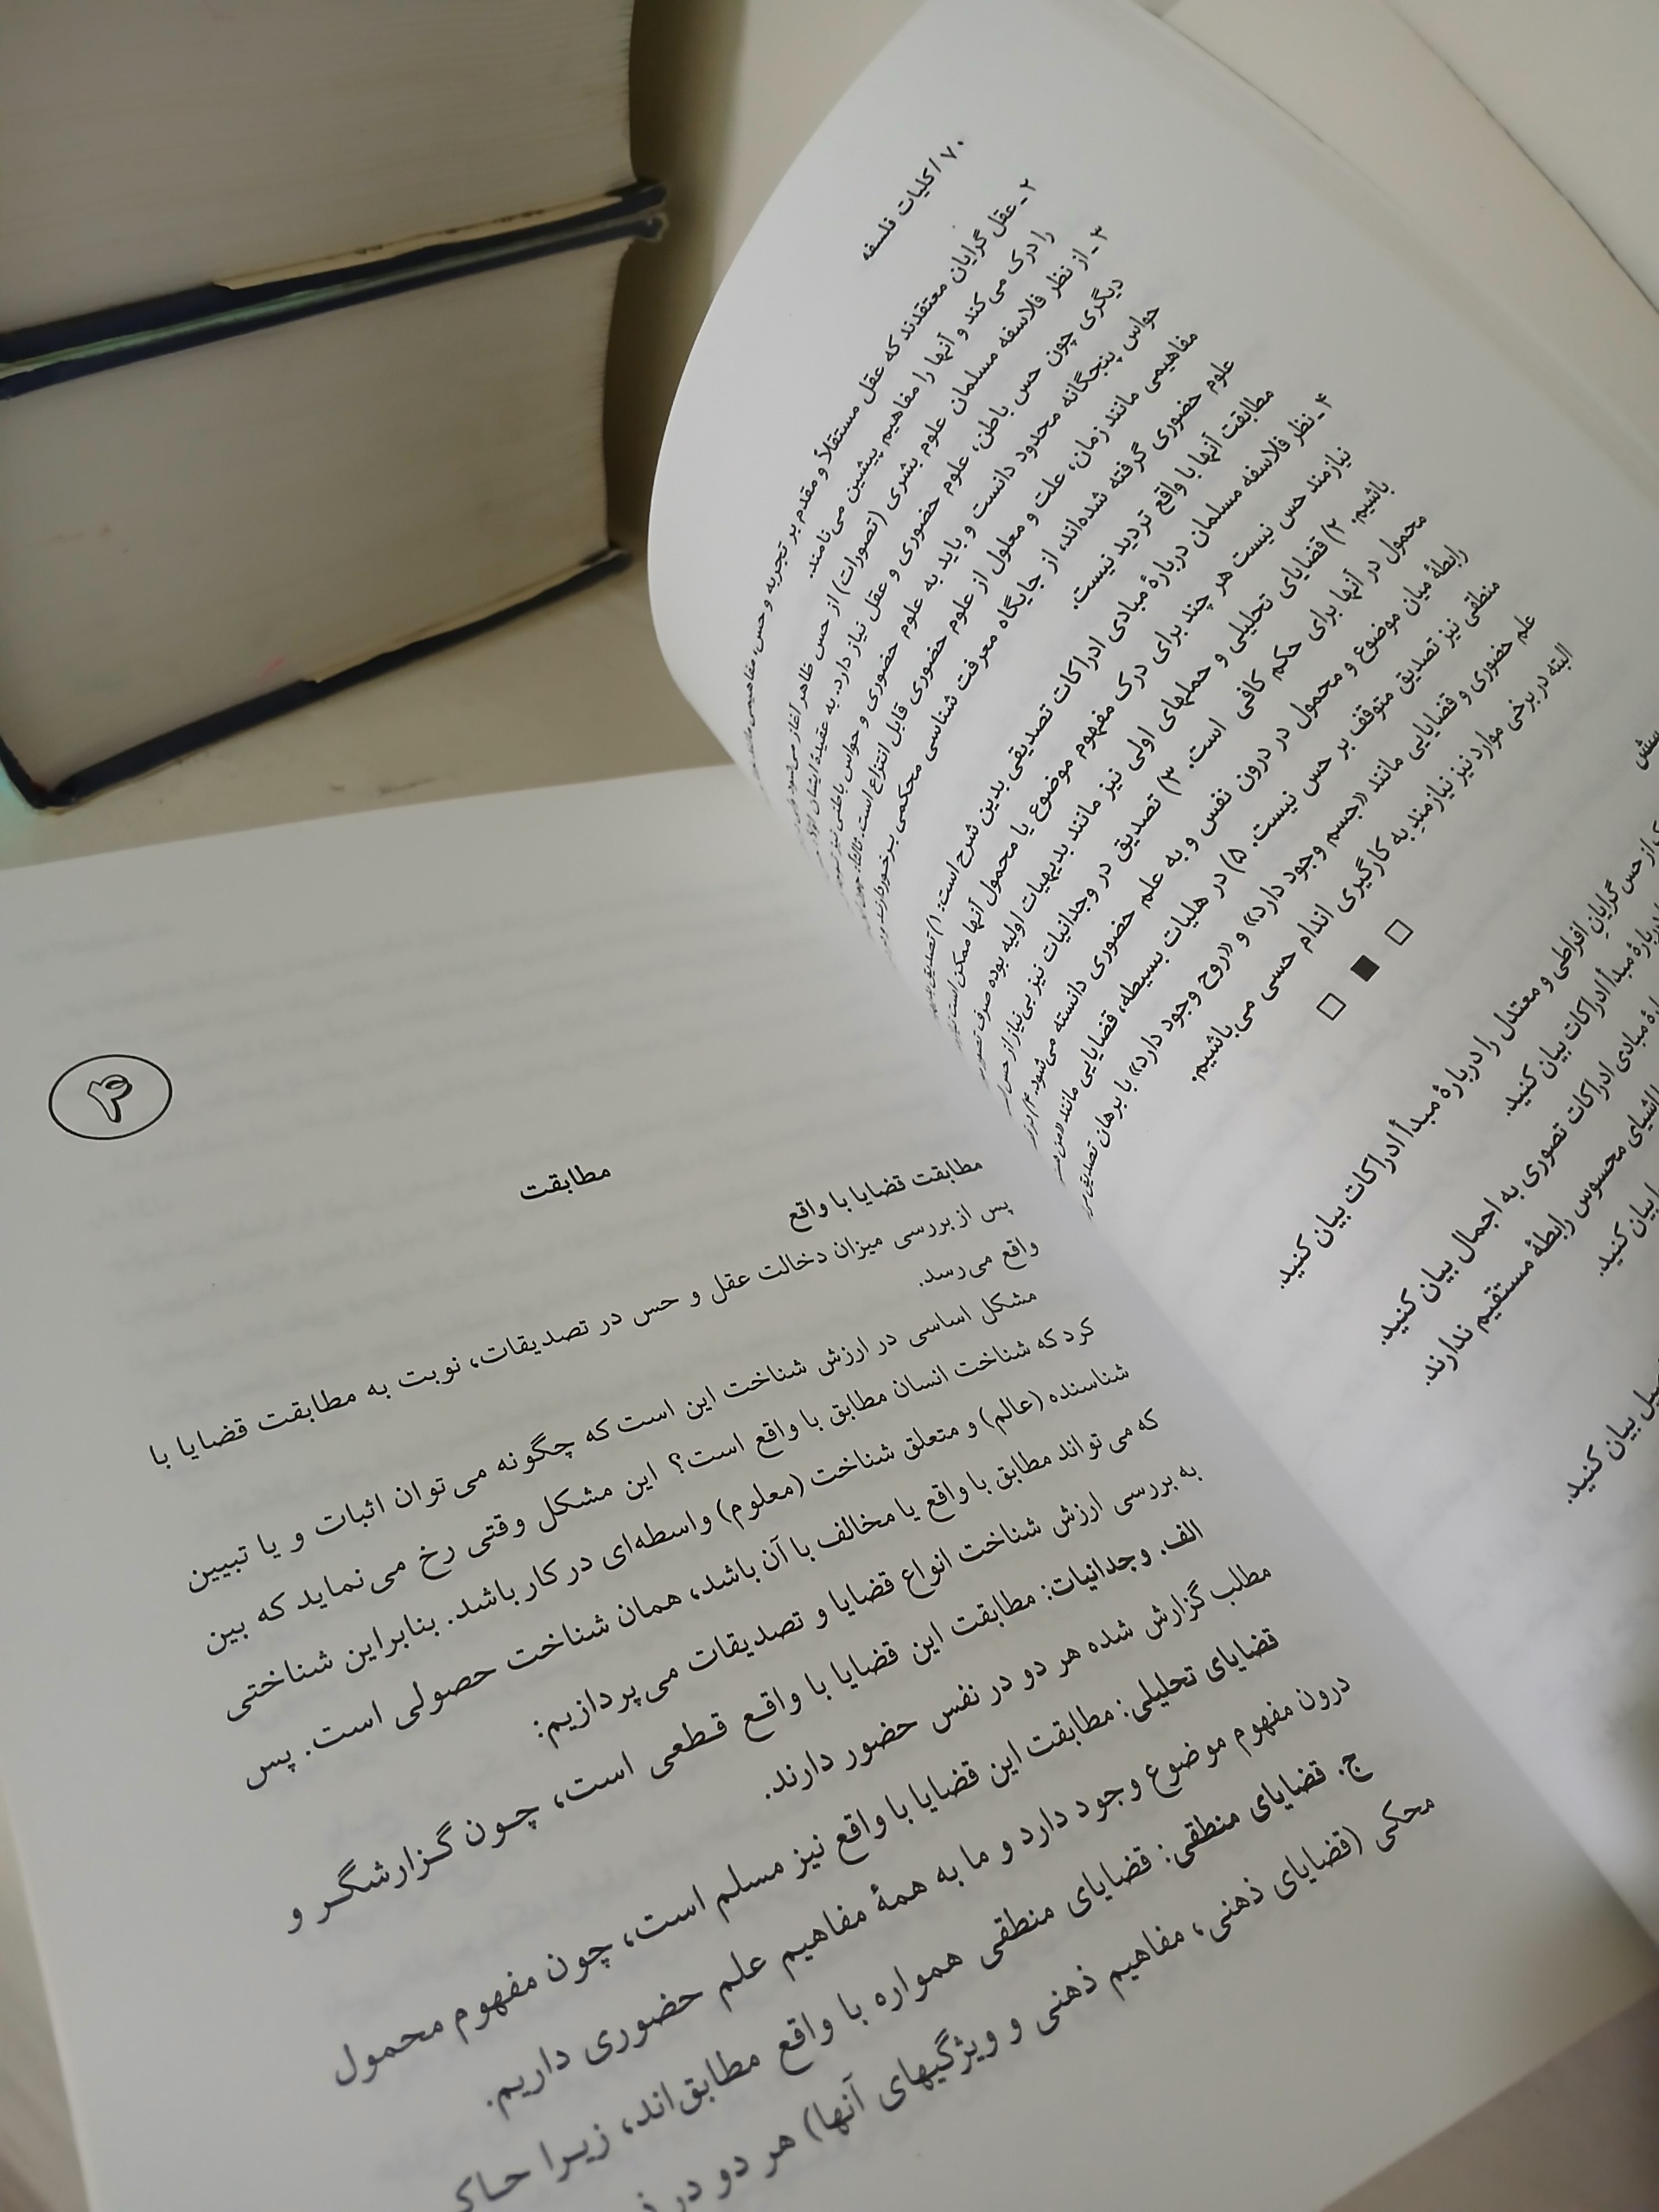 ۷۰ / کلیات فلسفه
۲ ـ عقل گرایان معتقدند که عقل مستقلاً و مقدم بر تجربه و حس، مفاهیمی
را درک می‌کند و آنها را مفاهیم پیشین می‌نامند.
۳ ـ از نظر فلاسفه مسلمان علوم بشری (تصورات) از حس ظاهر آغاز می‌شود
دیگری چون حس باطن، علوم حضوری و عقل نیاز دارد. به عقیدهٔ ایشان
حواس پنجگانه محدود دانست و باید به علوم حضوری و حواس باطنی نیز
مفاهیمی مانند زمان، علت و معلول از علوم حضوری قابل انتزاع است. ثالثاً:
علوم حضوری گرفته شده‌اند، از جایگاه معرفت شناسی محکمی برخوردارند
مطابقت آنها با واقع تردید نیست.
۴ ـ نظر فلاسفه مسلمان دربارهٔ مبادی ادراکات تصدیقی بدین شرح است: ۱) تصدیق
نیازمند حس نیست هر چند برای درک مفهوم موضوع یا محمول آنها ممکن است
باشیم. ۲) قضایای تحلیلی و حملهای اولی نیز مانند بدیهیات اولیه بوده صرف تصور
محمول در آنها برای حکم کافی است. ۳) تصدیق در وجدانیات نیز بی‌نیاز از حس
رابطهٔ میان موضوع و محمول در درون نفس و به علم حضوری دانسته می‌شود. ۴)
منطقی نیز تصدیق متوقف بر حس نیست. ۵) در هلیات بسیطه، قضایایی مانند
علم حضوری و قضایایی مانند «جسم وجود دارد» و «روح وجود دارد» با برهان تصدیق
البته در برخی موارد نیز نیازمند به کارگیری اندام حسی می‌باشیم.
از حس گرایان افراطی و معتدل را دربارهٔ مبدأ ادراکات بیان کنید.
دربارهٔ مبدأ ادراکات بیان کنید.
مبادی ادراکات تصوری به اجمال بیان کنید.
اشیای محسوس رابطهٔ مستقیم ندارند.
بیان کنید.
بیان کنید.
۶
مطابقت
مطابقت قضایا با واقع
پس از بررسی میزان دخالت عقل و حس در تصدیقات، نوبت به مطابقت قضایا با
واقع می‌رسد.
مشکل اساسی در ارزش شناخت این است که چگونه می‌توان اثبات و یا تبیین
کرد که شناخت انسان مطابق با واقع است؟ این مشکل وقتی رخ می‌نماید که بین
شناسنده (عالم) و متعلق شناخت (معلوم) واسطه‌ای در کار باشد. بنابراین شناختی
که می‌تواند مطابق با واقع یا مخالف با آن باشد، همان شناخت حصولی است. پس
به بررسی ارزش شناخت انواع قضایا و تصدیقات می‌پردازیم:
الف. وجدانیات: مطابقت این قضایا با واقع قطعی است، چون گزارشگر و
مطلب گزارش شده هر دو در نفس حضور دارند.
قضایای تحلیلی: مطابقت این قضایا با واقع نیز مسلم است، چون مفهوم محمول
درون مفهوم موضوع وجود دارد و ما به همهٔ مفاهیم علم حضوری داریم.
ج. قضایای منطقی: قضایای منطقی همواره با واقع مطابق‌اند، زیرا
محکی (قضایای ذهنی، مفاهیم ذهنی و ویژگیهای آنها) هر دو در